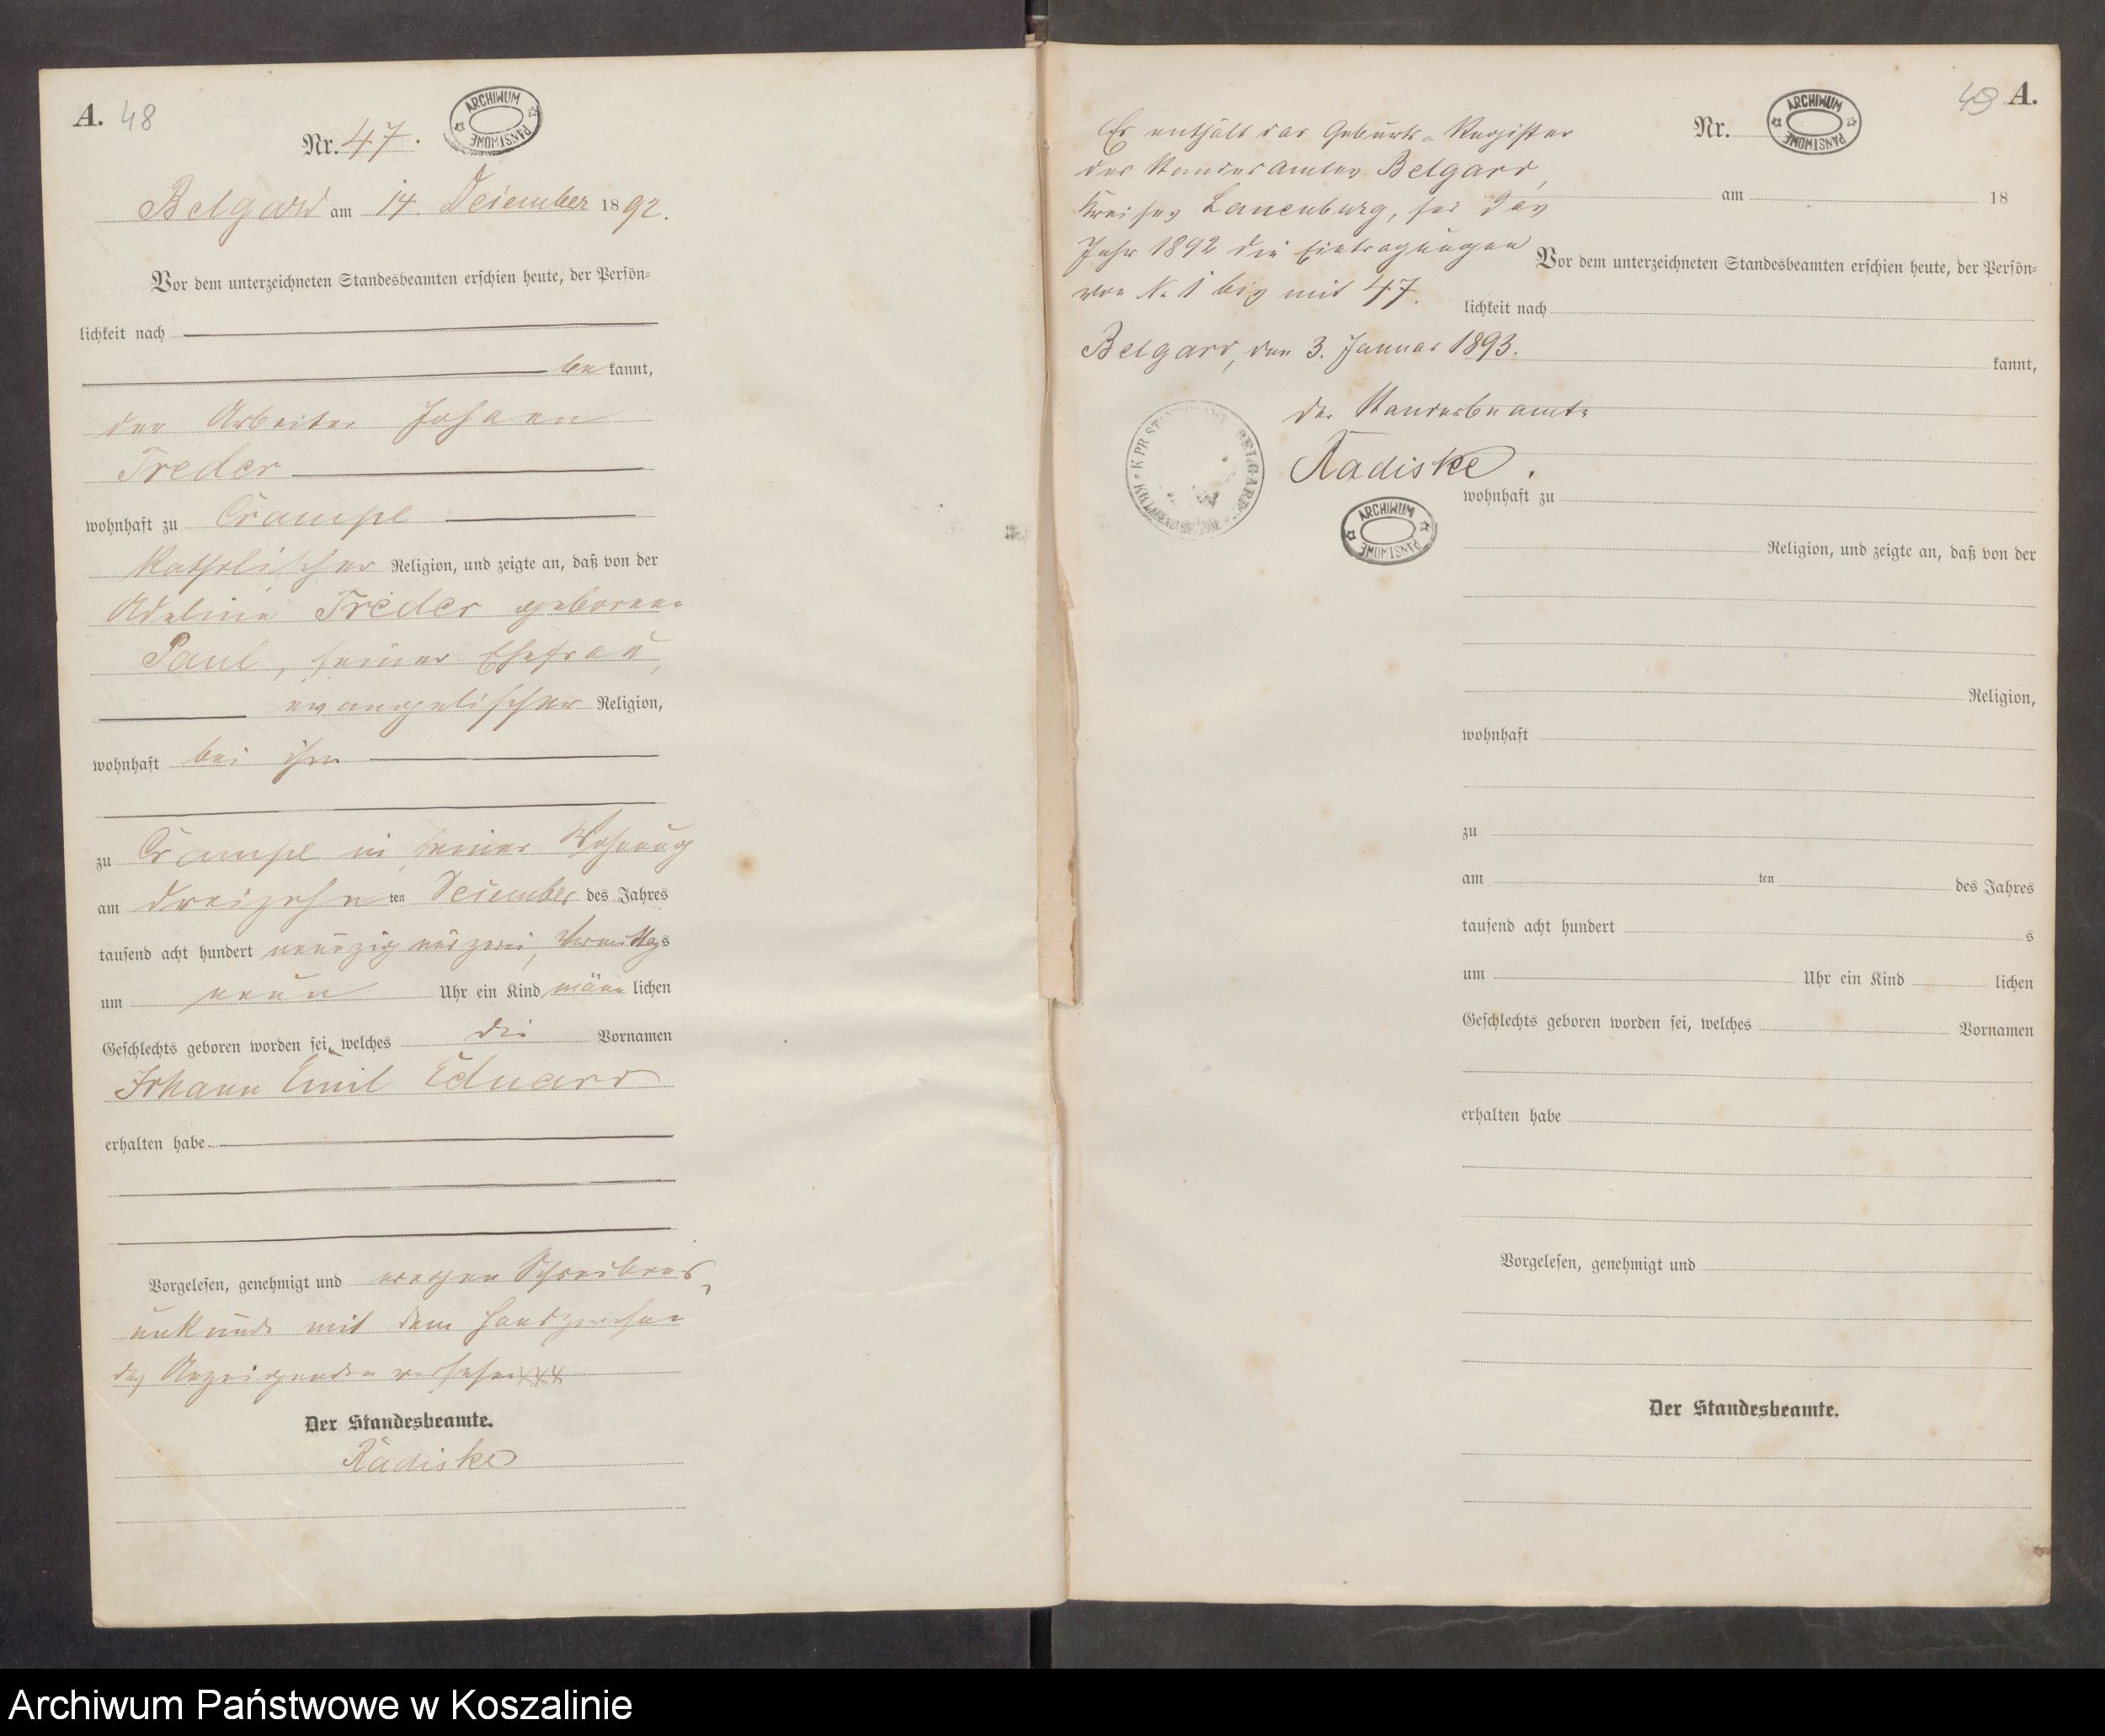 A. 48
Nr. 47.
ARCHIWUM PAŃSTWOWE
Belgard am 14. Dezember 1892.
Vor dem unterzeichneten Standesbeamten erschien heute, der Persön-
lichkeit nach
be kannt,
der Arbeiter Johann
Treder
wohnhaft zu Crampe
katholischer Religion, und zeigte an, daß von der
Adeline Treder geborene
Paul, seiner Ehefrau,
evangelischer Religion,
wohnhaft bei ihm
zu Crampe in seiner Wohnung
am dreizehn ten Dezember des Jahres
tausend acht hundert neunzig und zwei, Vormittags
um neun Uhr ein Kind männ lichen
Geschlechts geboren worden sei, welches die Vornamen
Johann Emil Eduard
erhalten habe
Vorgelesen, genehmigt und wegen Schreibens-
unkunde mit dem Handzeichen
des Anzeigenden versehen xxx
Der Standesbeamte.
Radiske
49 A.
Nr.
ARCHIWUM PAŃSTWOWE
Es enthält das Geburts-Register
des Standesamtes Belgard,
Kreises Lauenburg, für das
Jahr 1892 die Eintragungen
von No 1 bis mit 47.
Belgard, den 3. Januar 1893.
Der Standesbeamte
Radiske.
K. PR. STANDESAMT BELGARD
ARCHIWUM PAŃSTWOWE
am 18
Vor dem unterzeichneten Standesbeamten erschien heute, der Persön-
lichkeit nach
kannt,
wohnhaft zu
Religion, und zeigte an, daß von der
Religion,
wohnhaft
zu
am ten des Jahres
tausend acht hundert s
um Uhr ein Kind lichen
Geschlechts geboren worden sei, welches Vornamen
erhalten habe
Vorgelesen, genehmigt und
Der Standesbeamte.
Archiwum Państwowe w Koszalinie